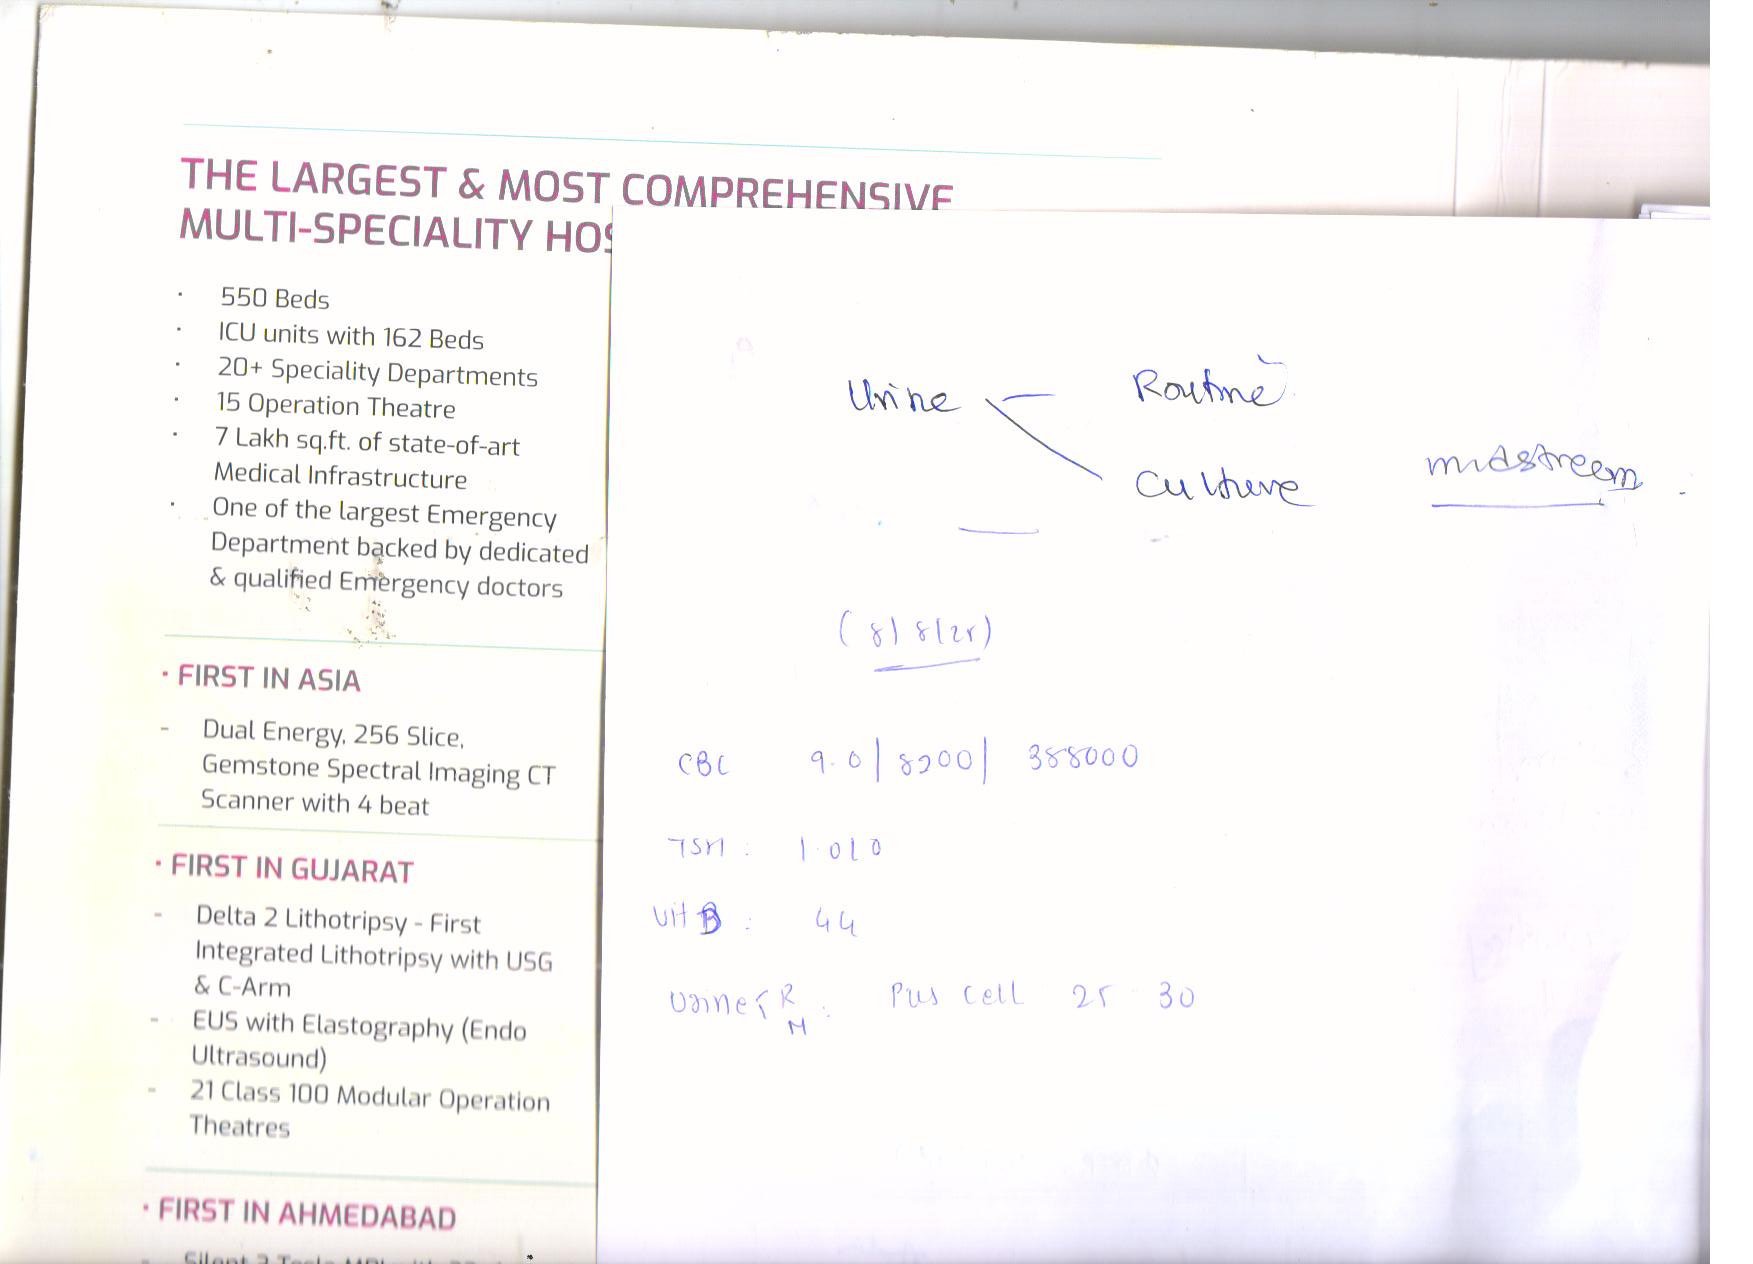 THE LARGEST & MOST COMPREHENSIVE
MULTI-SPECIALITY HOS
· 550 Beds
· ICU units with 162 Beds
· 20+ Speciality Departments
· 15 Operation Theatre
· 7 Lakh sq.ft. of state-of-art
Medical Infrastructure
· One of the largest Emergency
Department backed by dedicated
& qualified Emergency doctors
· FIRST IN ASIA
- Dual Energy, 256 Slice,
Gemstone Spectral Imaging CT
Scanner with 4 beat
· FIRST IN GUJARAT
- Delta 2 Lithotripsy - First
Integrated Lithotripsy with USG
& C-Arm
- EUS with Elastography (Endo
Ultrasound)
- 21 Class 100 Modular Operation
Theatres
· FIRST IN AHMEDABAD
Urine Routine
Culture midstreem
(8/8/25)
CBC 9.0 | 8200 | 388000
TSH : 1.010
Vit B : 44
Urine R : Pus cell 25 30
M